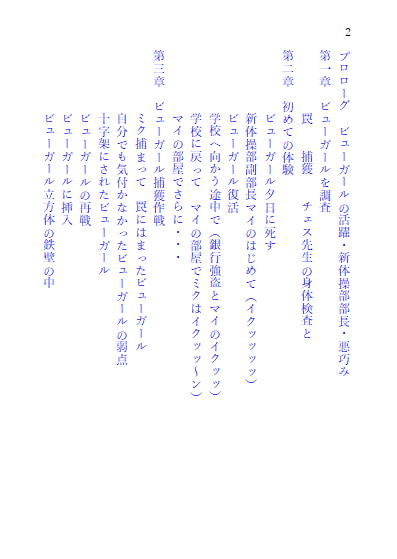 2
プロローグ　ビューガールの活躍・新体操部部長・悪巧み
第一章　ビューガールを調査
罠　捕獲　チェス先生の身体検査と
第二章　初めての体験
ビューガール夕日に死す
新体操部副部長マイのはじめて（イクッッッッ）
ビューガール復活
学校へ向かう途中で（銀行強盗とマイのイクッッ）
学校に戻って　マイの部屋でミクはイクッッ～ン）
マイの部屋でさらに・・・
第三章　ビューガール捕獲作戦
ミク捕まって　罠にはまったビューガール
自分でも気付かなかったビューガールの弱点
十字架にされたビューガール
ビューガールの再戦
ビューガールに挿入
ビューガール立方体の鉄壁の中